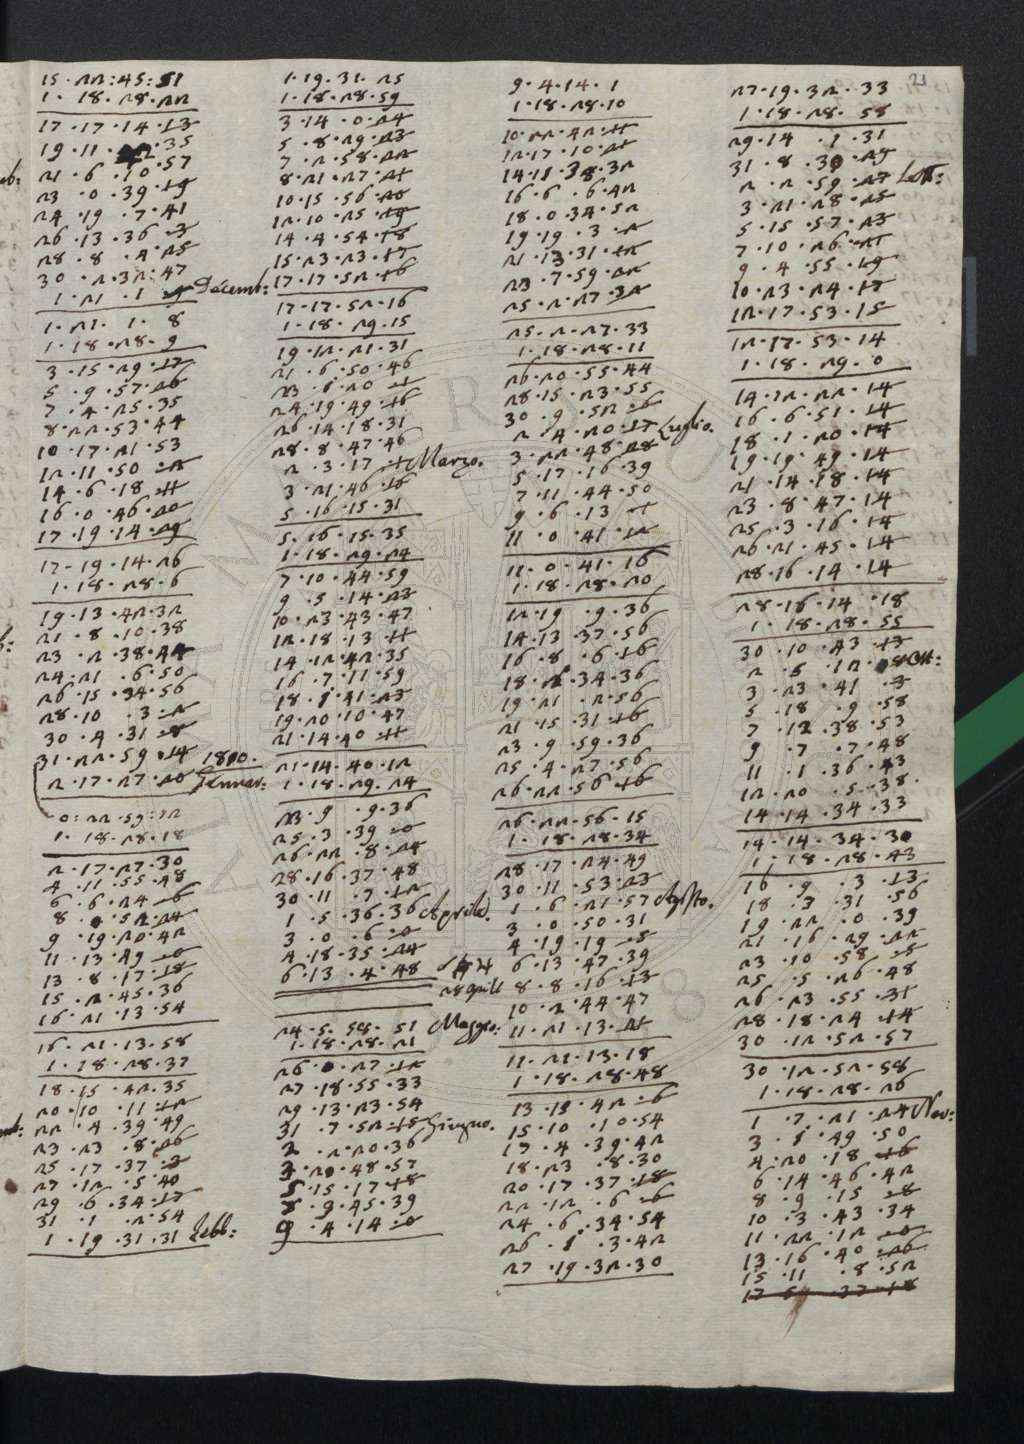 21
15 · 22 : 45 : 51
1 · 18 · 28 · 22
17 · 17 · 14 · 13
19 · 11 · 35
21 · 6 · 10 · 57
23 · 0 · 39 · 19
24 · 19 · 7 · 41
26 · 13 · 36 · 3
28 · 8 · 4 · 25
30 · 2 · 32 : 47
1 · 21 · 1 · 9 Decemb:
1 · 21 · 1 · 8
1 · 18 · 28 · 9
3 · 15 · 29 · 17
5 · 9 · 57 · 26
7 · 4 · 25 · 35
8 · 22 · 53 · 44
10 · 17 · 21 · 53
12 · 11 · 50 · 2
14 · 6 · 18 · 11
16 · 0 · 46 · 20
17 · 19 · 14 · 29
17 · 19 · 14 · 26
1 · 18 · 28 · 6
19 · 13 · 42 · 32
21 · 8 · 10 · 38
23 · 2 · 38 · 44
24 · 21 · 6 · 50
26 · 15 · 34 · 56
28 · 10 · 3 · 2
30 · 4 · 31 · 8
31 · 22 · 59 · 14 1800.
2 · 17 · 27 · 20 Gennar:
0 : 22 · 59 : 12
1 · 18 · 28 · 18
2 · 17 · 27 · 30
4 · 11 · 55 · 48
6 · 6 · 24 · 6
8 · 0 · 52 · 24
9 · 19 · 20 · 42
11 · 13 · 49 · 0
13 · 8 · 17 · 18
15 · 2 · 45 · 36
16 · 21 · 13 · 54
16 · 21 · 13 · 58
1 · 18 · 28 · 37
18 · 15 · 42 · 35
20 · 10 · 11 · 12
22 · 4 · 39 · 49
23 · 23 · 8 · 26
25 · 17 · 37 · 3
27 · 12 · 5 · 40
29 · 6 · 34 · 17
31 · 1 · 2 · 54
1 · 19 · 31 · 31 Febb:
1 · 19 · 31 · 25
1 · 18 · 28 · 59
3 · 14 · 0 · 24
5 · 8 · 29 · 23
7 · 2 · 58 · 22
8 · 21 · 27 · 21
10 · 15 · 56 · 20
12 · 10 · 25 · 19
14 · 4 · 54 · 18
15 · 23 · 23 · 17
17 · 17 · 52 · 16
17 · 17 · 52 · 16
1 · 18 · 29 · 15
19 · 12 · 21 · 31
21 · 6 · 50 · 46
23 · 1 · 20 · 1
24 · 19 · 49 · 16
26 · 14 · 18 · 31
28 · 8 · 47 · 46
2 · 3 · 17 · 1 Marzo.
3 · 21 · 46 · 16
5 · 16 · 15 · 31
5 · 16 · 15 · 35
1 · 18 · 29 · 24
7 · 10 · 44 · 59
9 · 5 · 14 · 23
10 · 23 · 43 · 47
12 · 18 · 13 · 11
14 · 12 · 42 · 35
16 · 7 · 11 · 59
18 · 1 · 41 · 23
19 · 20 · 10 · 47
21 · 14 · 40 · 11
21 · 14 · 40 · 12
1 · 18 · 29 · 24
23 · 9 · 9 · 36
25 · 3 · 39 · 0
26 · 22 · 8 · 24
28 · 16 · 37 · 48
30 · 11 · 7 · 12
1 · 5 · 36 · 36 Aprile.
3 · 0 · 6 · 0
4 · 18 · 35 · 24
6 · 13 · 4 · 48
28 Aprile
24 · 5 · 58 · 51 Maggio:
1 · 18 · 28 · 21
26 · 0 · 27 · 12
27 · 18 · 55 · 33
29 · 13 · 23 · 54
31 · 7 · 52 · 15 Giugno.
2 · 2 · 20 · 36
3 · 20 · 48 · 57
5 · 15 · 17 · 18
7 · 9 · 45 · 39
9 · 4 · 14 · 0
9 · 4 · 14 · 1
1 · 18 · 28 · 10
10 · 22 · 42 · 11
12 · 17 · 10 · 21
14 · 11 · 38 · 32
16 · 6 · 6 · 42
18 · 0 · 34 · 52
19 · 19 · 3 · 2
21 · 13 · 31 · 12
23 · 7 · 59 · 22
25 · 2 · 27 · 32
25 · 2 · 27 · 33
1 · 18 · 28 · 11
26 · 20 · 55 · 44
28 · 15 · 23 · 55
30 · 9 · 52 · 6
2 · 4 · 20 · 17 Luglio.
3 · 22 · 48 · 28
5 · 17 · 16 · 39
7 · 11 · 44 · 50
9 · 6 · 13 · 1
11 · 0 · 41 · 12
11 · 0 · 41 · 16
1 · 18 · 28 · 20
12 · 19 · 9 · 36
14 · 13 · 37 · 56
16 · 8 · 6 · 16
18 · 2 · 34 · 36
19 · 21 · 2 · 56
21 · 15 · 31 · 16
23 · 9 · 59 · 36
25 · 4 · 27 · 56
26 · 22 · 56 · 16
26 · 22 · 56 · 15
1 · 18 · 28 · 34
28 · 17 · 24 · 49
30 · 11 · 53 · 23
1 · 6 · 21 · 57 Agosto.
3 · 0 · 50 · 31
4 · 19 · 19 · 5
6 · 13 · 47 · 39
8 · 8 · 16 · 13
10 · 2 · 44 · 47
11 · 21 · 13 · 21
11 · 21 · 13 · 18
1 · 18 · 28 · 48
13 · 15 · 42 · 6
15 · 10 · 10 · 54
17 · 4 · 39 · 42
18 · 23 · 8 · 30
20 · 17 · 37 · 18
22 · 12 · 6 · 6
24 · 6 · 34 · 54
26 · 1 · 3 · 42
27 · 19 · 32 · 30
27 · 19 · 32 · 33
1 · 18 · 28 · 58
29 · 14 · 1 · 31
31 · 8 · 30 · 29
2 · 2 · 59 · 27 Sett:
3 · 21 · 28 · 25
5 · 15 · 57 · 23
7 · 10 · 26 · 21
9 · 4 · 55 · 19
10 · 23 · 24 · 17
12 · 17 · 53 · 15
12 · 17 · 53 · 14
1 · 18 · 29 · 0
14 · 12 · 22 · 14
16 · 6 · 51 · 14
18 · 1 · 20 · 14
19 · 19 · 49 · 14
21 · 14 · 18 · 14
23 · 8 · 47 · 14
25 · 3 · 16 · 14
26 · 21 · 45 · 14
28 · 16 · 14 · 14
28 · 16 · 14 · 18
1 · 18 · 28 · 55
30 · 10 · 43 · 13
2 · 5 · 12 · 8 Ott:
3 · 23 · 41 · 3
5 · 18 · 9 · 58
7 · 12 · 38 · 53
9 · 7 · 7 · 48
11 · 1 · 36 · 43
12 · 20 · 5 · 38
14 · 14 · 34 · 33
14 · 14 · 34 · 30
1 · 18 · 28 · 43
16 · 9 · 3 · 13
18 · 3 · 31 · 56
19 · 22 · 0 · 39
21 · 16 · 29 · 22
23 · 10 · 58 · 5
25 · 5 · 26 · 48
26 · 23 · 55 · 31
28 · 18 · 24 · 14
30 · 12 · 52 · 57
30 · 12 · 52 · 58
1 · 18 · 28 · 26
1 · 7 · 21 · 24 Nov:
3 · 1 · 49 · 50
4 · 20 · 18 · 16
6 · 14 · 46 · 42
8 · 9 · 15 · 8
10 · 3 · 43 · 34
11 · 22 · 12 · 0
13 · 16 · 40 · 26
15 · 11 · 8 · 52